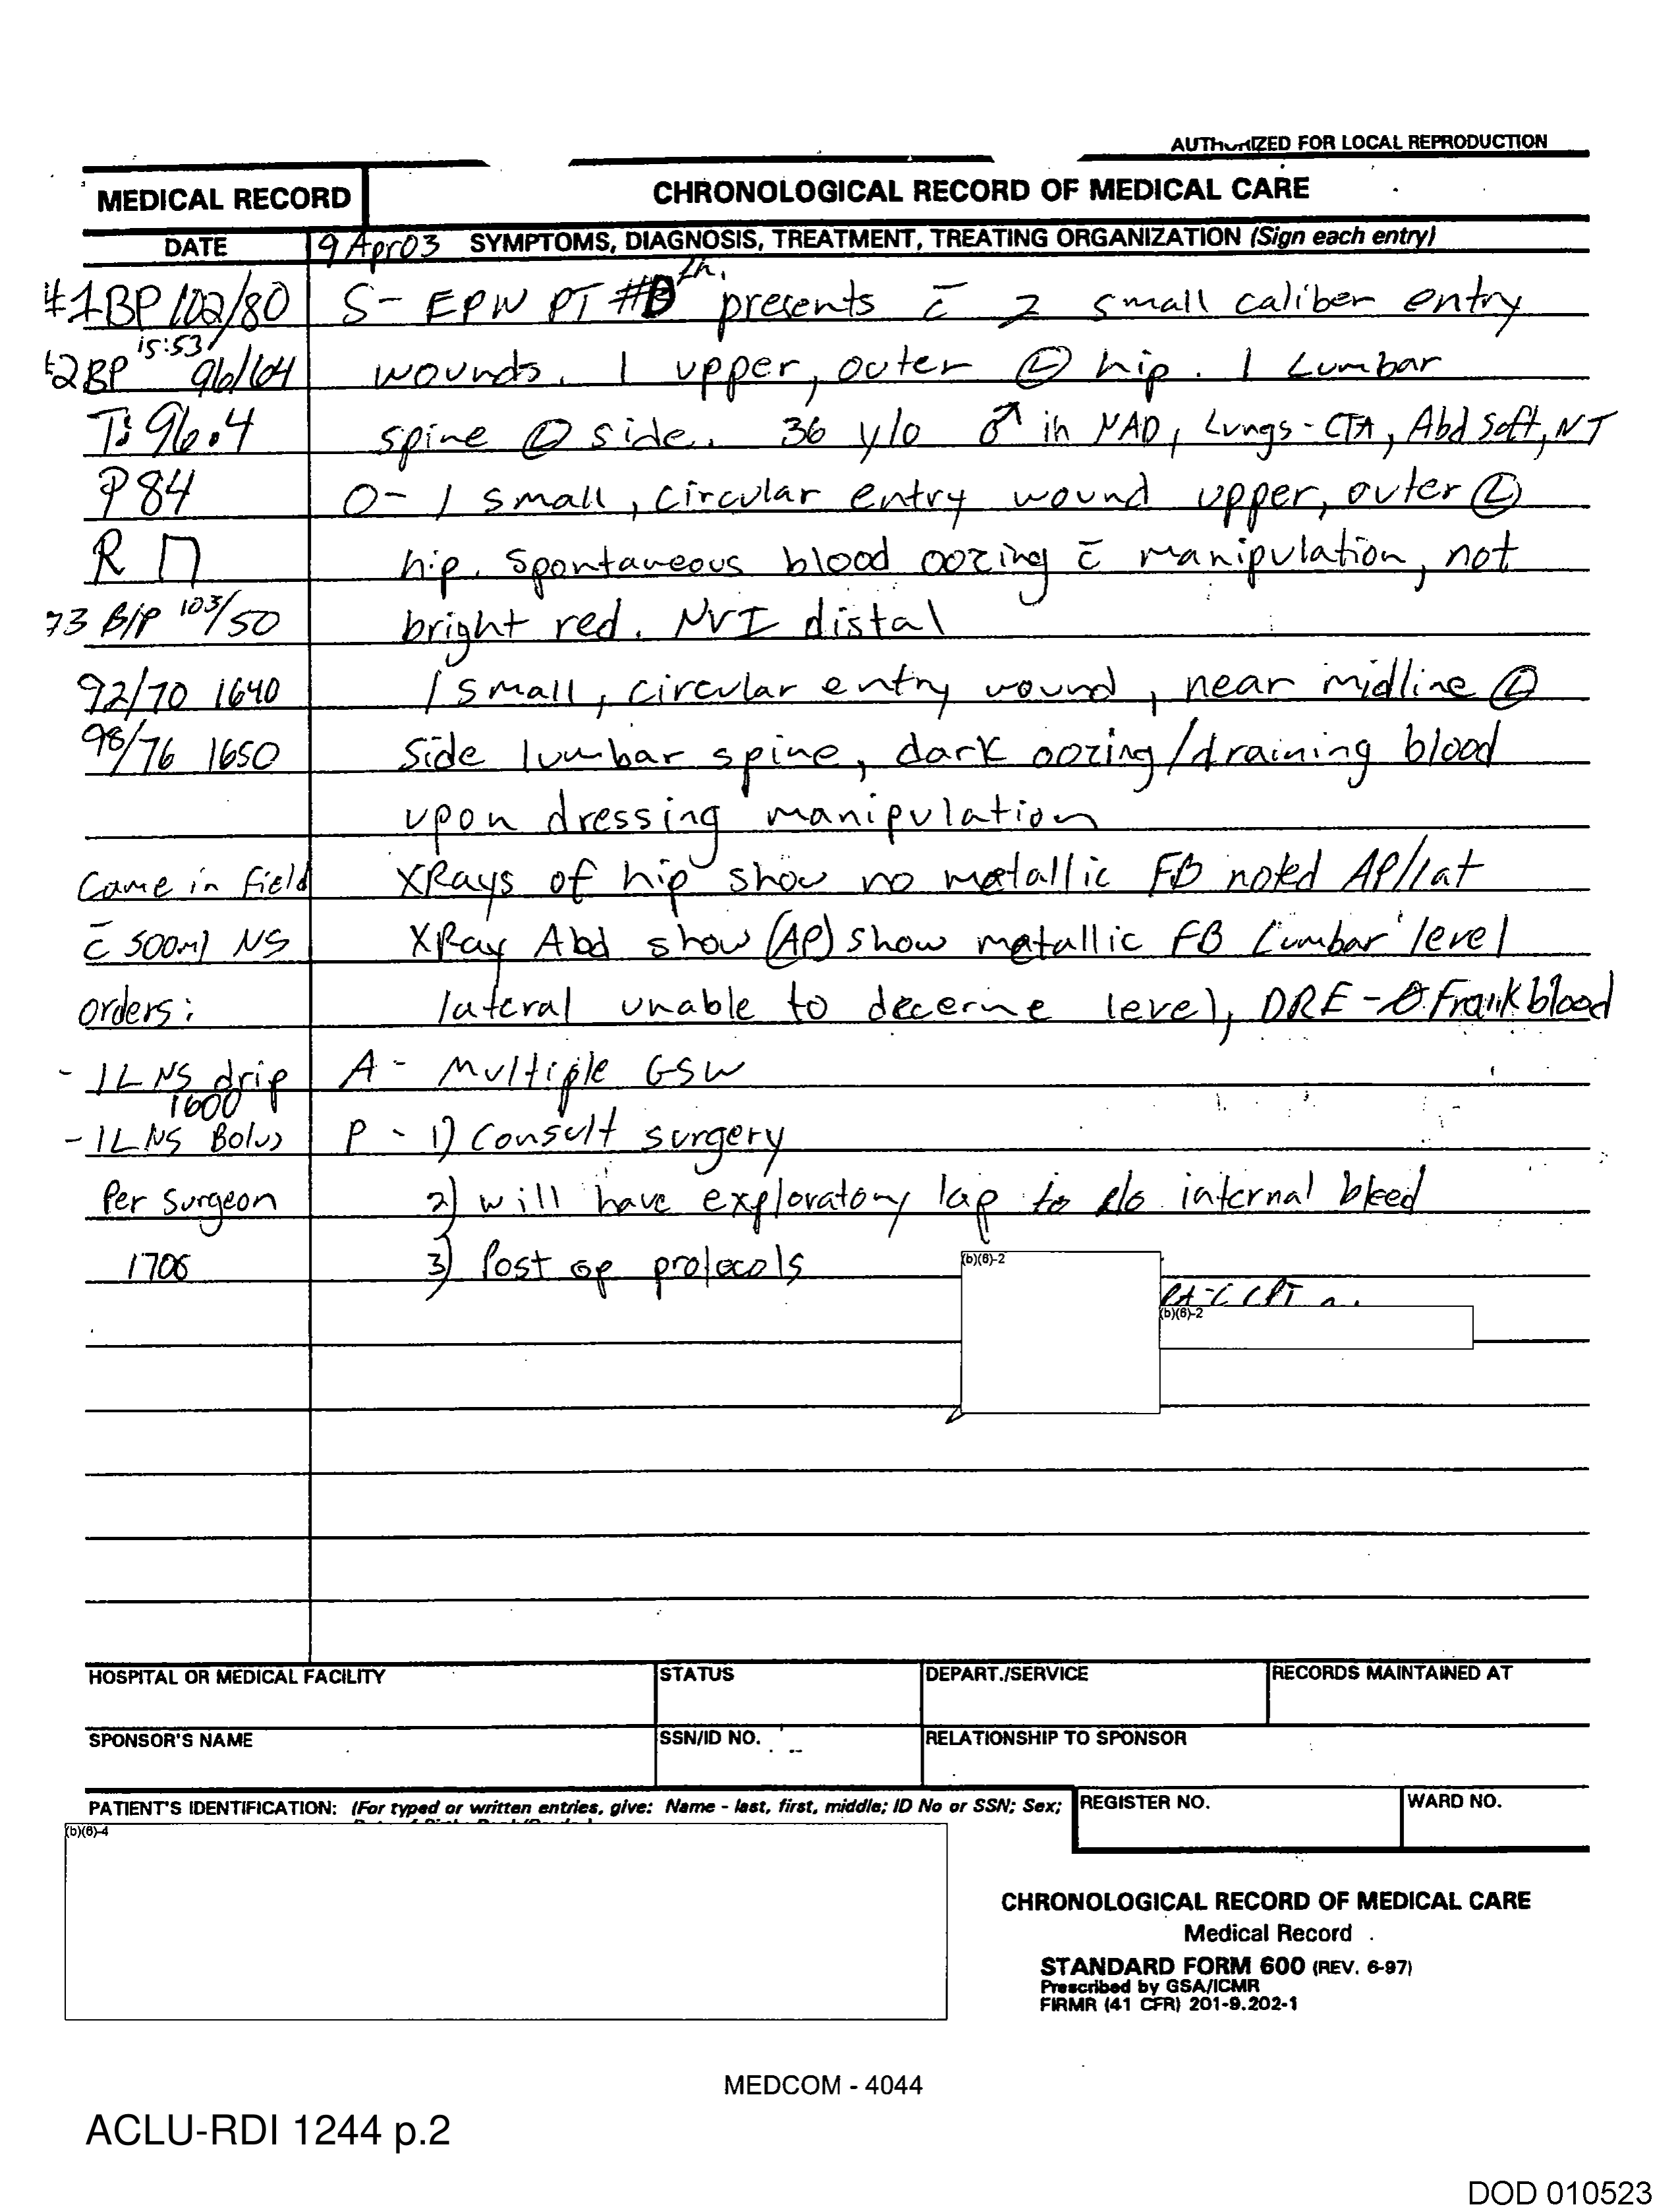 AUTHORIZED FOR LOCAL REPRODUCTION
MEDICAL RECORD
CHRONOLOGICAL RECORD OF MEDICAL CARE
DATE
9 Apr 03 SYMPTOMS, DIAGNOSIS, TREATMENT, TREATING ORGANIZATION (Sign each entry)
#1 BP 102/80
S- EPW PT # presents c̄ 2 small caliber entry
15:53
#2 BP 96/64
wounds. 1 upper, outer Ⓛ hip. 1 Lumbar
T: 96.4
spine Ⓛ side. 36 y/o ♂ in NAD, Lungs-CTA, Abd Soft, NT
P 84
O- 1 small, circular entry wound upper, outer Ⓛ
R
hip. Spontaneous blood oozing c̄ manipulation, not
B/P 103/50
bright red. NVI distal
92/70 1640
1 small, circular entry wound, near midline Ⓛ
98/76 1650
side lumbar spine, dark oozing/draining blood
upon dressing manipulation
Came in field
XRays of hip show no metallic FB noted AP/lat
c̄ 500ml NS
XRay Abd show (AP) show metallic FB Lumbar level
orders:
lateral unable to decerne level, DRE-Ø Frank blood
- 1L NS drip
A- Multiple GSW
1600
- 1L NS Bolus
P- 1) Consult surgery
Per Surgeon
2) will have exploratory lap to r/o internal bleed
1706
3) Post op protocols
(b)(6)-2
PA-C CPT
(b)(6)-2
HOSPITAL OR MEDICAL FACILITY
STATUS
DEPART./SERVICE
RECORDS MAINTAINED AT
SPONSOR'S NAME
SSN/ID NO.
RELATIONSHIP TO SPONSOR
PATIENT'S IDENTIFICATION: (For typed or written entries, give: Name - last, first, middle; ID No or SSN; Sex;
REGISTER NO.
WARD NO.
(b)(6)-4
CHRONOLOGICAL RECORD OF MEDICAL CARE
Medical Record
STANDARD FORM 600 (REV. 6-97)
Prescribed by GSA/ICMR
FIRMR (41 CFR) 201-9.202-1
MEDCOM - 4044
ACLU-RDI 1244 p.2
DOD 010523